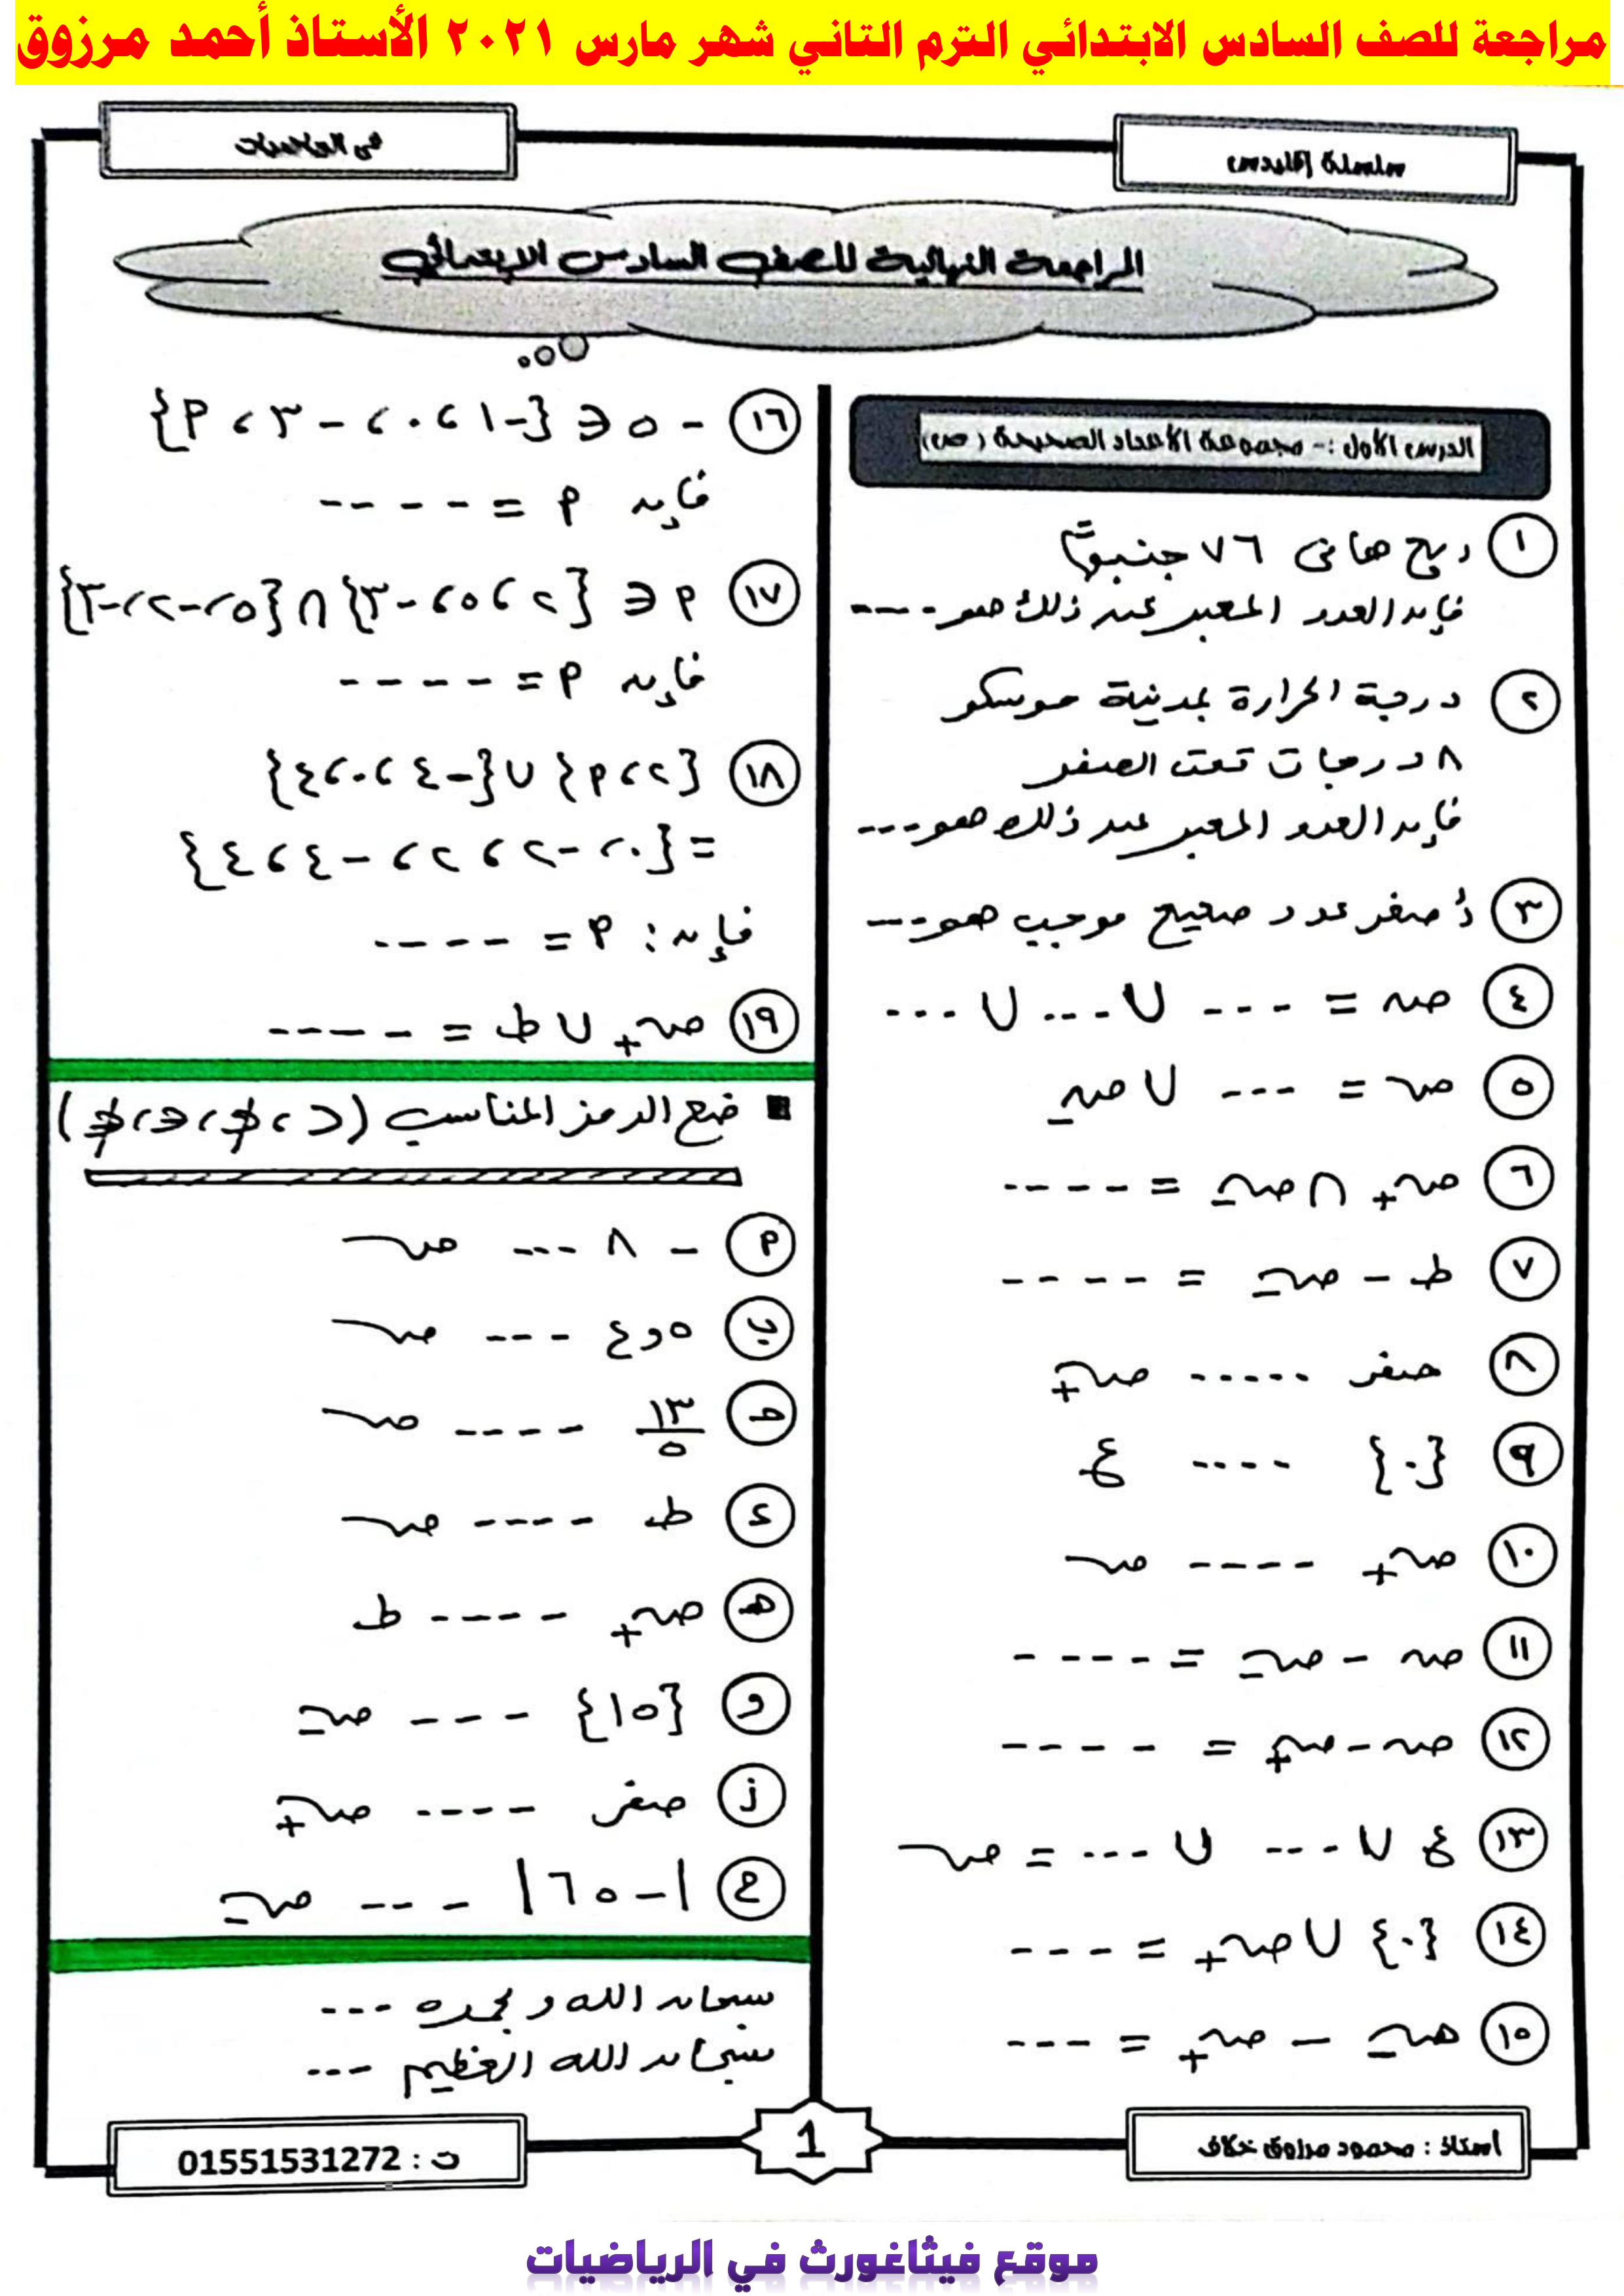 مراجعة للصف السادس الابتدائي الترم الثاني شهر مارس ٢٠٢١ الأستاذ أحمد مرزوق
سلسلة إقليدس
فى الرياضيات
المراجعة النهائية للصف السادس الابتدائي
الدرس الأول :- مجموعة الأعداد الصحيحة (ص)
١ ربح هانى ٧٦ جنيهًا
فإن العدد المعبر عن ذلك هو ----
٢ درجة الحرارة بمدنية موسكو
٨ درجات تحت الصفر
فإن العدد المعبر عن ذلك هو ---
٣ أصغر عدد صحيح موجب هو ---
٤ صہ = --- ∪ --- ∪ ---
٥ صہ = --- ∪ صہ₋
٦ صہ₊ ∩ صہ₋ = ----
٧ ط - صہ₋ = ----
٨ صفر ----- صہ₊
٩ {٠} ---- ع
١٠ صہ₊ ---- صہ
١١ صہ - صہ₋ = ----
١٢ صہ - صہ₊ = ----
١٣ ع ∪ --- ∪ --- = صہ
١٤ {٠} ∪ صہ₊ = ---
١٥ صہ₋ - صہ₊ = ---
١٦ - ٥ ∈ {-١ ، ٠ ، - ٣ ، ٩}
فإن ٩ = ----
١٧ ٩ ∈ {٢ ، ٥ ، -٣} ∩ {٥ ، -٢ ، -٣}
فإن ٩ = ----
١٨ {٢ ، ٩} ∪ {-٤ ، ٠ ، ٤}
= {٠ ، -٢ ، ٢ ، -٤ ، ٤}
فإن : ٩ = ----
١٩ صہ₊ ∪ ط = -----
■ ضع الرمز المناسب (⊂ ، ⊄ ، ∈ ، ∉)
٩ - ٨ --- صہ
ب ٥و٤ --- صہ
حـ ١٣/٥ ---- صہ
ء ط ---- صہ
هـ صہ₊ ---- ط
و {١٥} --- صہ₋
ز صفر ---- صہ₊
ح |-٥٦| --- صہ₋
سبحان الله وبحمده ---
سبحان الله العظيم ---
أستاذ : محمود مرزوق خلاف
1
ت : 01551531272
موقع فيثاغورث في الرياضيات